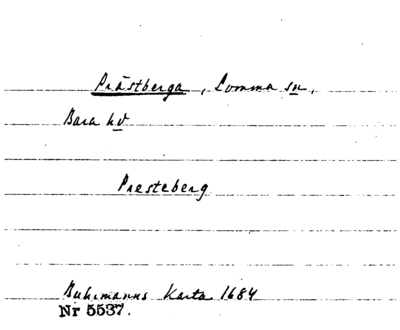 Prästberga, Lomma sn,
Bara hd
Presteberg
Buhrmanns Karta 1684
Nr 5537.